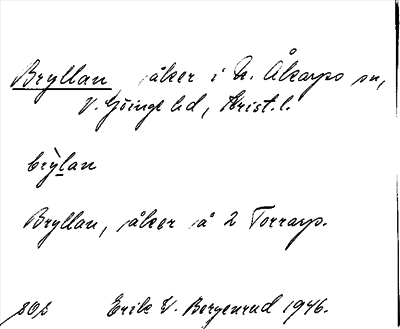 Bryllan, åker i N. Åkarps sn,
V. Göinge hd, Krist. l.
brỳlan
Bryllan, åker på 2 Torrarp.
Erik V. Borgenrud 1946.